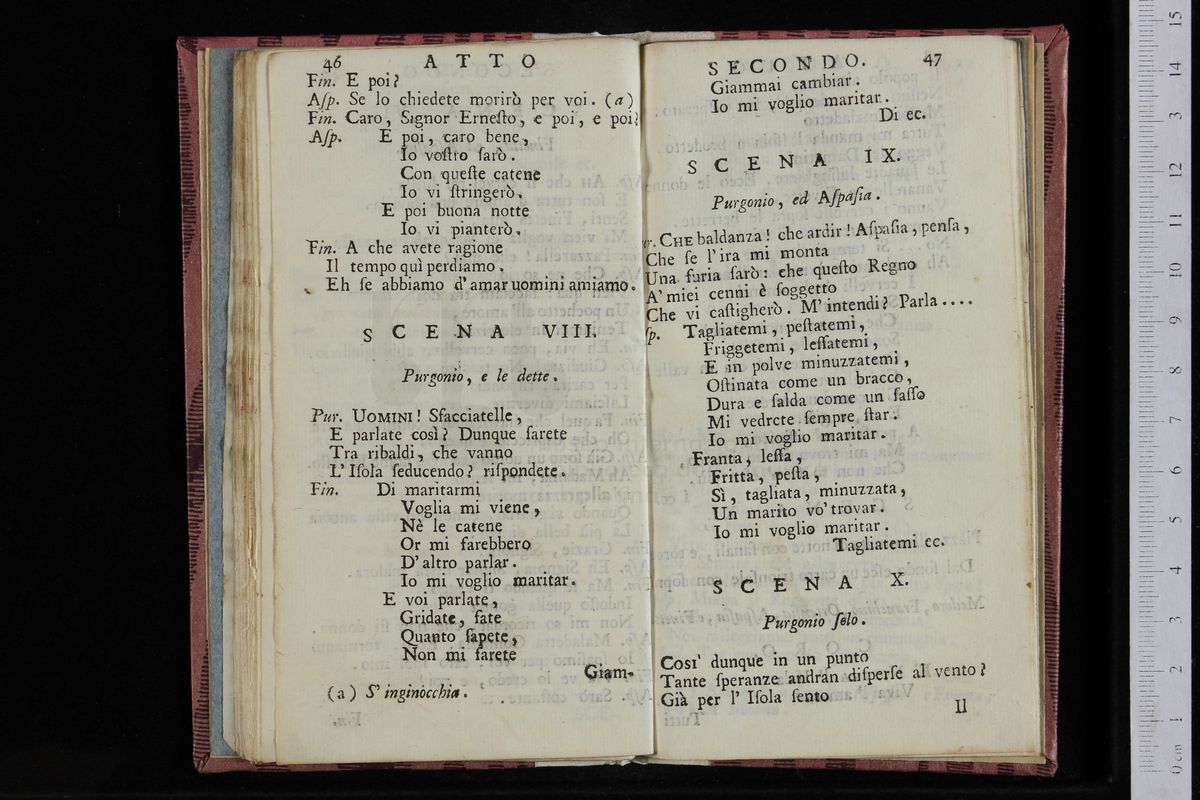 46 ATTO
Fin. E poi?
Aſp. Se lo chiedete morirò per voi. (a)
Fin. Caro, Signor Erneſto, e poi, e poi?
Aſp. E poi, caro bene,
Io voſtro ſarò.
Con queſte catene
Io vi ſtringerò.
E poi buona notte
Io vi pianterò.
Fin. A che avete ragione
Il tempo quì perdiamo.
Eh ſe abbiamo d'amar uomini amiamo.
SCENA VIII.
Purgonio, e le dette.
Pur. UOMINI! Sfacciatelle,
E parlate così? Dunque ſarete
Tra ribaldi, che vanno
L'Iſola ſeducendo? riſpondete.
Fin. Di maritarmi
Voglia mi viene,
Nè le catene
Or mi farebbero
D'altro parlar.
Io mi voglio maritar.
E voi parlate,
Gridate, fate
Quanto ſapete,
Non mi farete
Giam-
(a) S'inginocchia.
SECONDO. 47
Giammai cambiar.
Io mi voglio maritar.
Di ec.
SCENA IX.
Purgonio, ed Aſpaſia.
r. CHE baldanza! che ardir! Aſpaſia, penſa,
Che ſe l'ira mi monta
Una furia ſarò: che queſto Regno
A' miei cenni è ſoggetto
Che vi caſtigherò. M'intendi? Parla....
ſp. Tagliatemi, peſtatemi,
Friggetemi, leſſatemi,
E in polve minuzzatemi,
Oſtinata come un bracco,
Dura e ſalda come un ſaſſo
Mi vedrete ſempre ſtar.
Io mi voglio maritar.
Franta, leſſa,
Fritta, peſta,
Sì, tagliata, minuzzata,
Un marito vo' trovar.
Io mi voglio maritar.
Tagliatemi ec.
SCENA X.
Purgonio ſolo.
COSI' dunque in un punto
Tante ſperanze andran diſperſe al vento?
Già per l'Iſola ſento
Il
0 cm 1 2 3 4 5 6 7 8 9 10 11 12 13 14 15